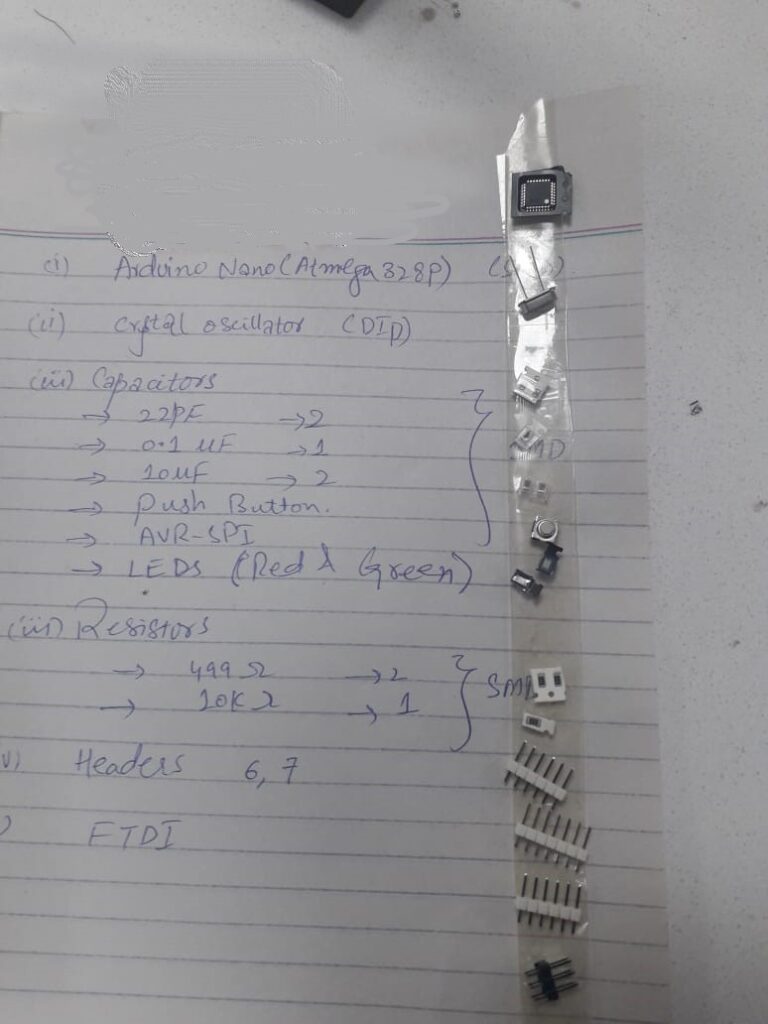 (i) Arduino Nano (Atmega 328P)
(ii) Crystal oscillator (DIP)
(iii) Capacitors
→ 22PF → 2
→ 0.1 UF → 1
→ 10UF → 2
→ Push Button.
→ AVR-SPI
→ LEDs (Red & Green)
(iii) Resistors
→ 499 Ω → 2
→ 10K Ω → 1
Headers 6, 7
FTDI